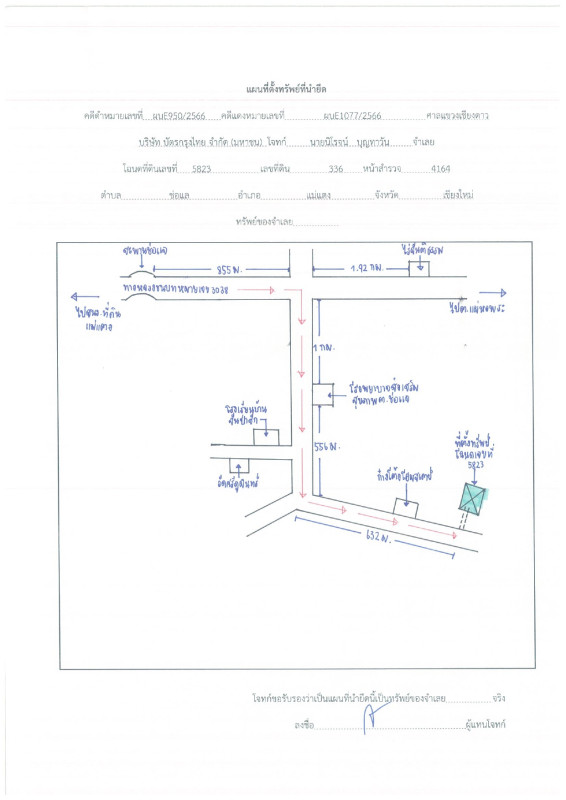 แผนที่ตั้งทรัพย์ที่นำยึด
คดีดำหมายเลขที่ ผบE950/2566 คดีแดงหมายเลขที่ ผบE1077/2566 ศาลแขวงเชียงดาว
บริษัท บัตรกรุงไทย จำกัด (มหาชน) โจทก์ นายนิโรจน์ บุญทาวัน จำเลย
โฉนดที่ดินเลขที่ 5823 เลขที่ดิน 336 หน้าสำรวจ 4164
ตำบล ช่อแล อำเภอ แม่แตง จังหวัด เชียงใหม่
ทรัพย์ของจำเลย
สะพานช่อแล
855 ม.
1.92 กม.
ไร่สันติธรรม
ทางหลวงชนบทหมายเลข 3038
ไปสนง.ที่ดิน
แม่แตง
ไปต.แม่หอพระ
1 กม.
โรงพยาบาลส่งเสริม
สุขภาพต.ช่อแล
โรงเรียนบ้าน
สันป่าสัก
556 ม.
ที่ตั้งทรัพย์
โฉนดเลขที่
5823
632 ม.
โจทก์ขอรับรองว่าเป็นแผนที่นำยึดนี้เป็นทรัพย์ของจำเลย จริง
ลงชื่อ ผู้แทนโจทก์